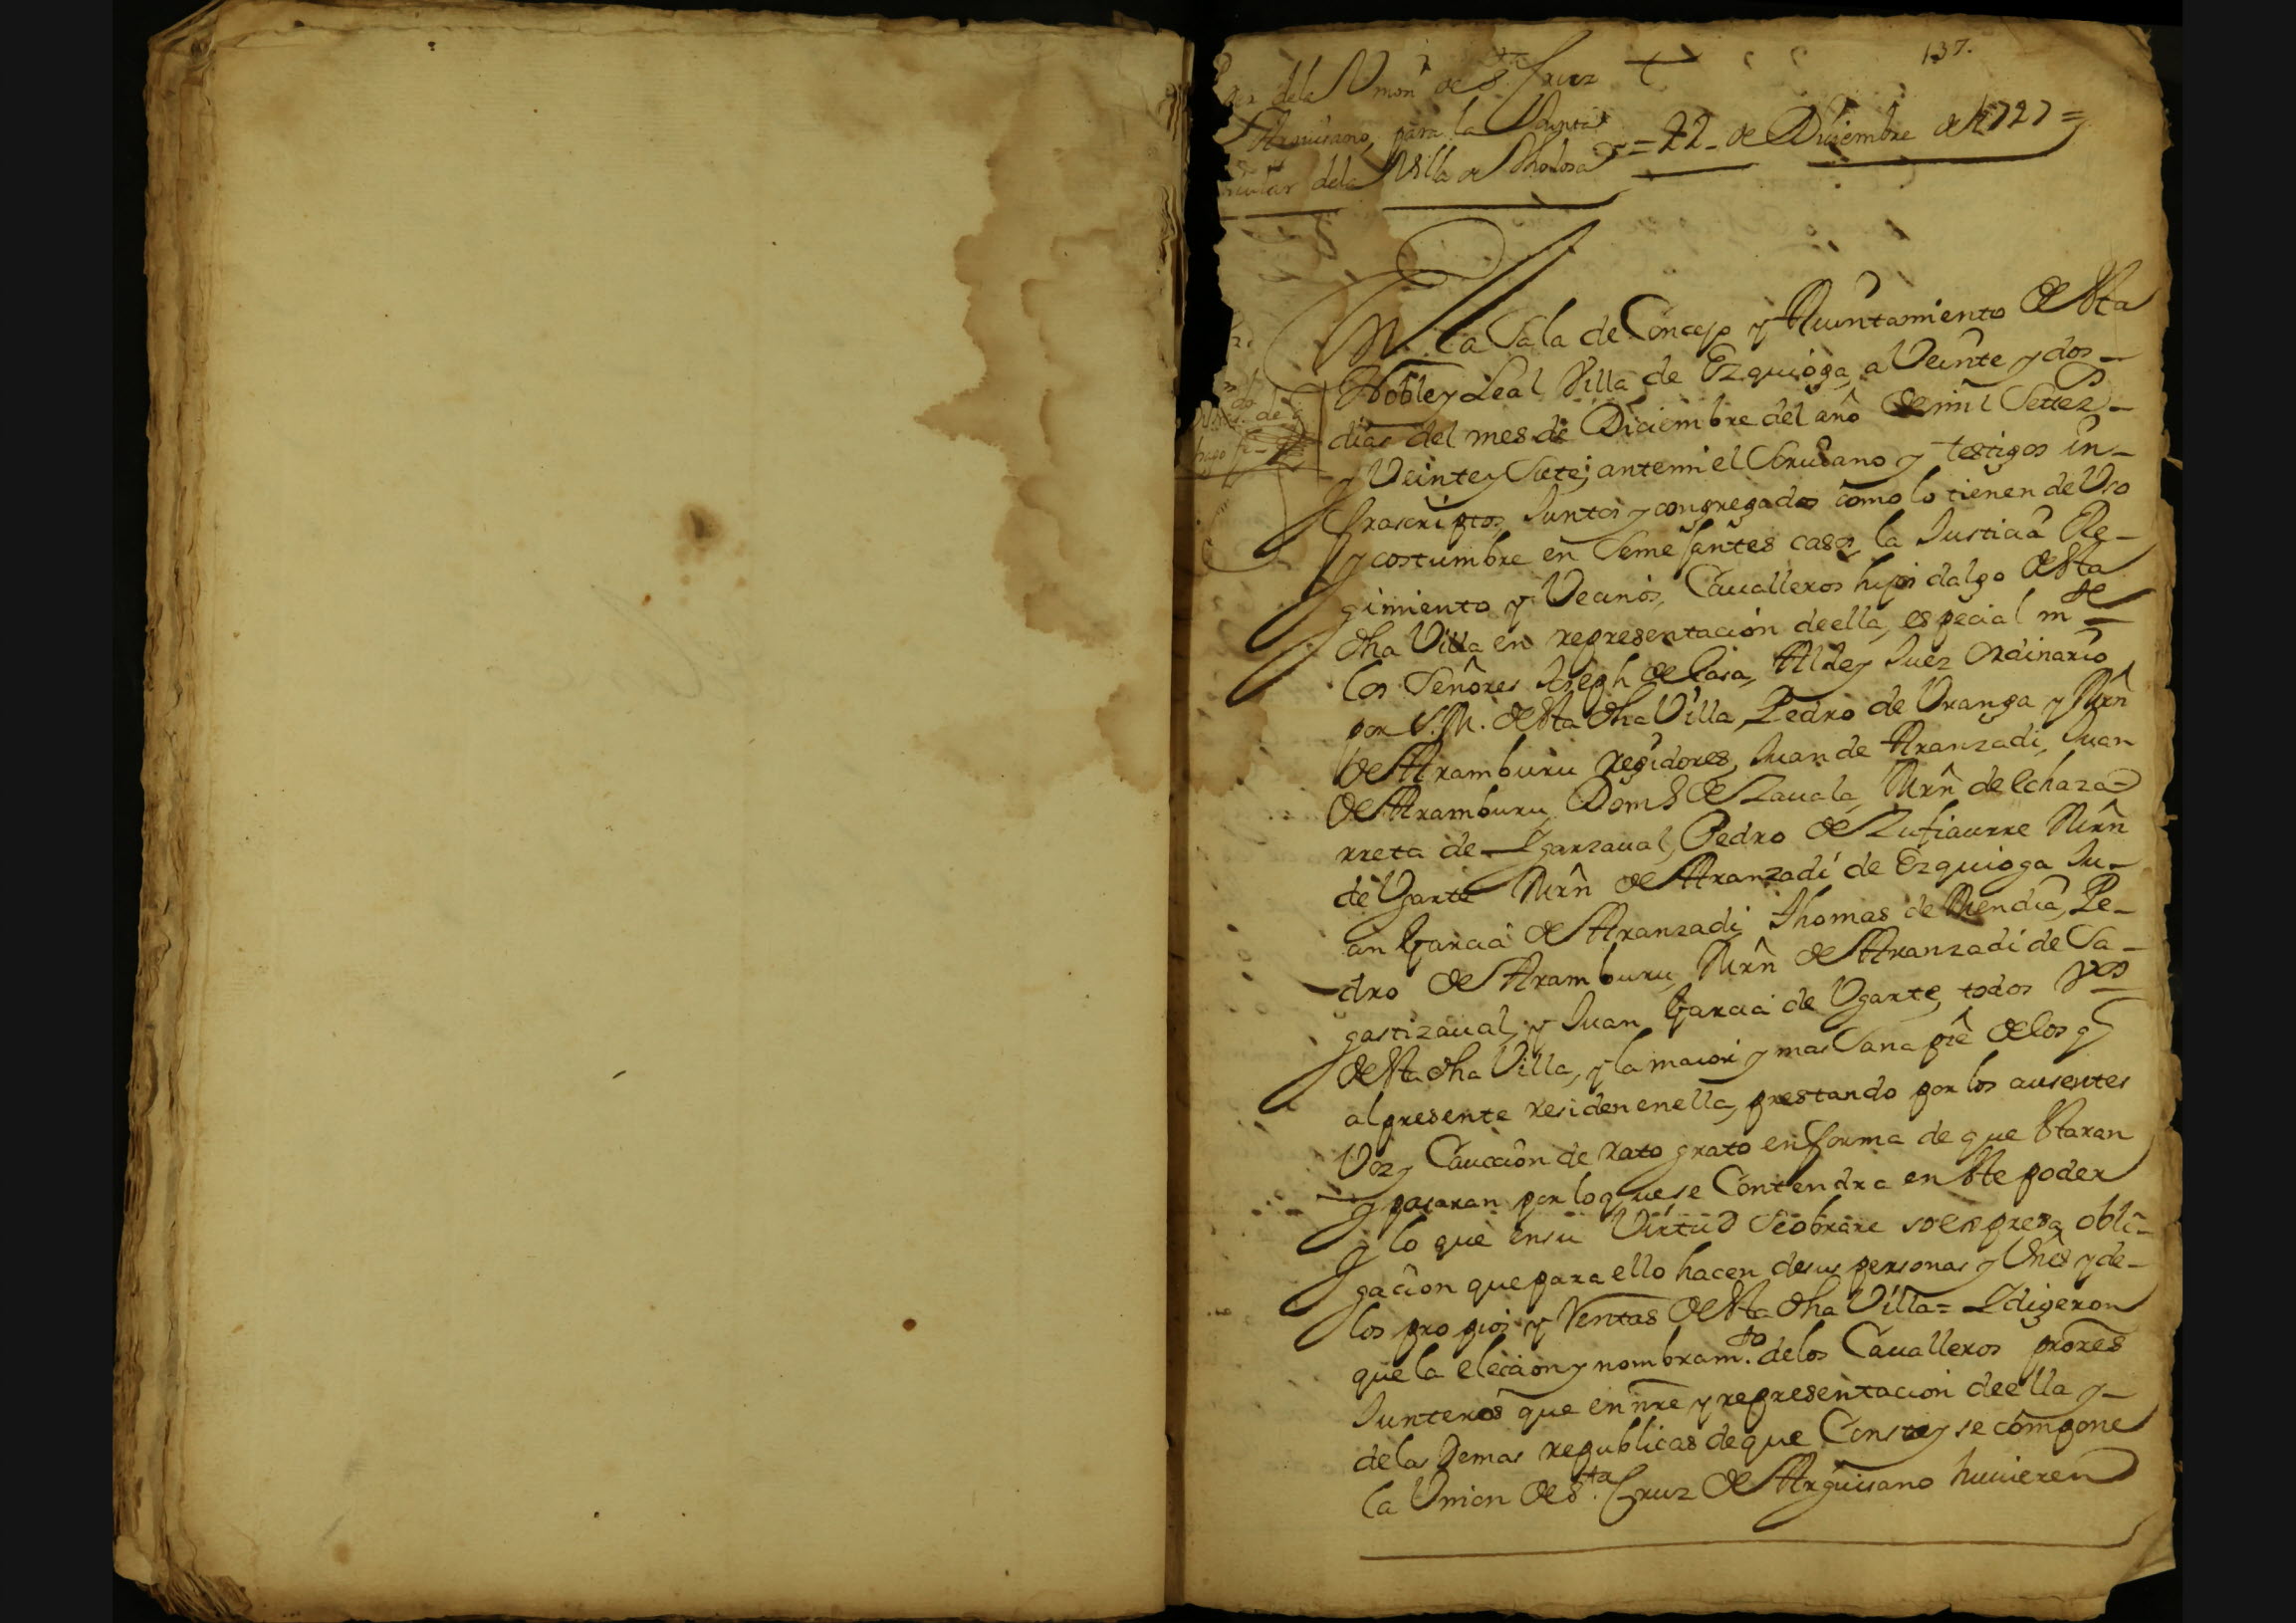 137.
der dela Vnion de S.ta Cruz
de Arguisano, para la Junta
particular dela Villa de Tholosa
= 22 - de Diciembre de 1727 =
En la Sala de Concejo y Aiuntamiento de esta
Noble y Leal Villa de Ezquioga, a Veinte y dos
dias del mes de Diciembre del año de mil Setez.
y Veinte y Siete; ante mi el Scriuano y testigos in-
frascriptos, Juntos y congregados como lo tienen de Vso
y costumbre en Semejantes casos, la Justicia Re-
gimiento y Vecinos, Caualleros hijos dalgo de esta
dha Villa en representacion de ella, especial m.te
los Señores Joseph de Lasa, Alde y Juez Ordinario
por S.M. de esta dha Villa, Pedro de Vranga y Mrn
de Aramburu regidores, Juan de Aranzadi, Juan
de Aramburu, Dom.o de Zauala, Mrn de Echaza-
rreta de Igarzaual, Pedro de Zufiaurre Mrn
de Vgarte Mrn de Aranzadi de Ezquioga Ju-
an Garcia de Aranzadi, Thomas de Mendia, Pe-
dro de Aramburu, Mrn de Aranzadi de Sa-
gastizaual, y Juan Garcia de Vgarte, todos Vos
de esta dha Villa, y la maior y mas Sana pte de los q
al presente residen en ella, prestando por los ausentes
Voz y Caucion de rato grato en forma de que Staran
y pasaran por lo que se Contendra en Ste poder
y lo que en su Virtud Se obrare so expresa obli-
gacion que para ello hacen de sus personas y Vnes y de-
los propios y rentas de esta dha Villa = I digeron
que la elecion y nombram.to de los Caualleros prores
Junteros que en nre y representacion de ella y
de las Demas republicas de que Conste y se compone
la Vnion de S.ta Cruz de Arguisano huuieren